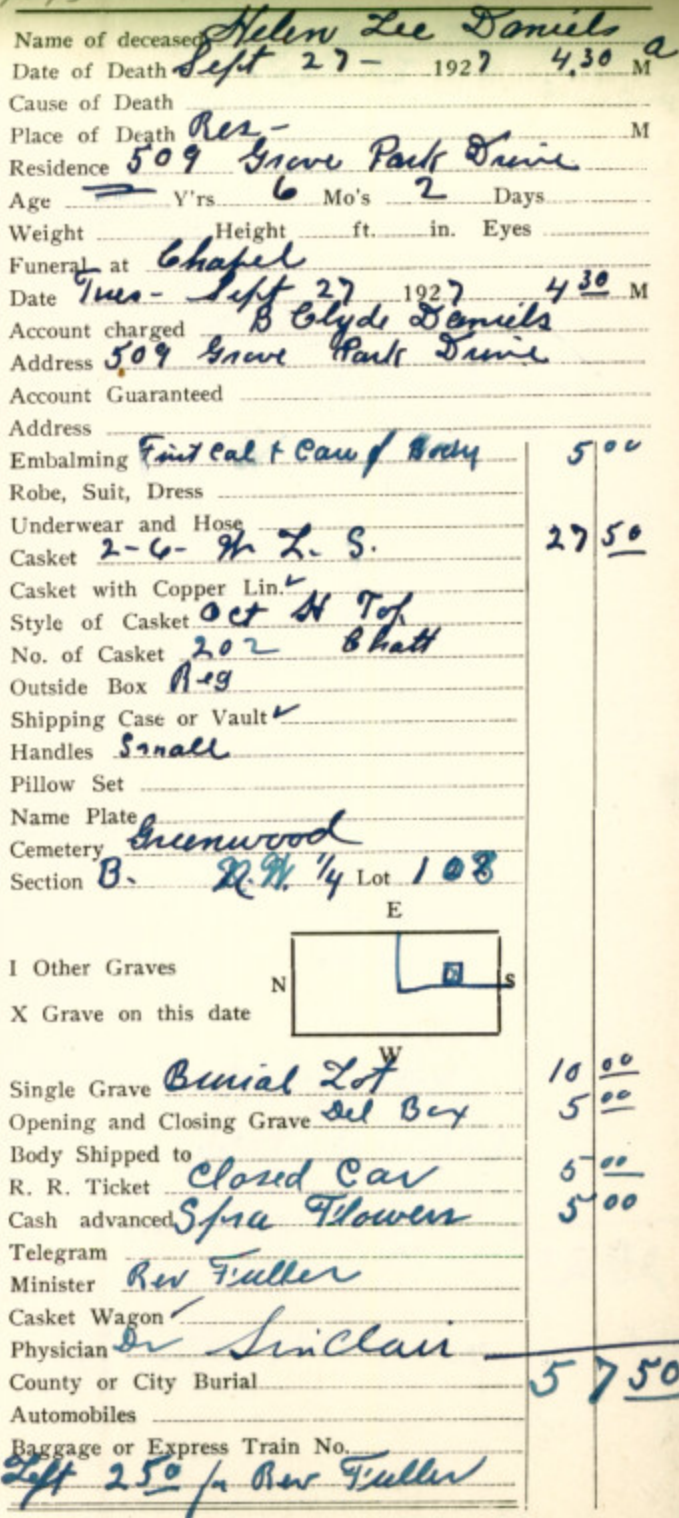 Name of deceased Helen Lee Daniels
Date of Death Sept 27 - 1927 4.30 a M
Cause of Death
Place of Death Res - M
Residence 509 Grove Park Drive
Age = Y'rs 6 Mo's 2 Days
Weight Height ft. in. Eyes
Funeral at Chapel
Date Tues - Sept 27 1927 4 30 M
Account charged B Clyde Daniels
Address 509 Grove Park Drive
Account Guaranteed
Address
Embalming First Cal + Care of Body 5 00
Robe, Suit, Dress
Underwear and Hose
Casket 2-6- W L. S. 27 50
Casket with Copper Lin. ✓
Style of Casket Oct H Top
No. of Casket 202 Chatt
Outside Box Reg
Shipping Case or Vault ✓
Handles Small
Pillow Set
Name Plate
Cemetery Greenwood
Section B. N.W. 1/4 Lot 108
E
I Other Graves
N S
X Grave on this date
W
Single Grave Burial Lot 10 00
Opening and Closing Grave Del Box 5 00
Body Shipped to
R. R. Ticket Closed Car 5 00
Cash advanced Spra Flowers 5 00
Telegram
Minister Rev Fuller
Casket Wagon ✓
Physician Dr Sinclair
County or City Burial 57 50
Automobiles
Baggage or Express Train No.
Left 2 50 for Rev Fuller